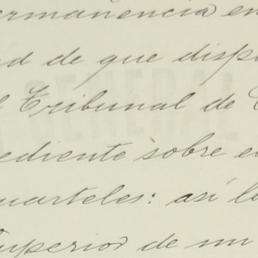 ermanencia en
d de que disp
l Tribunal de
ediente sobre e
uarteles: así lo
uperior de un